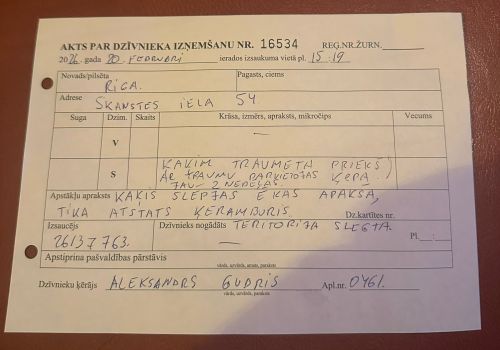 AKTS PAR DZĪVNIEKA IZŅEMŠANU NR. 16534 REĢ.NR.ŽURN.
2026. gada 20. FEBRUARI ierados izsaukuma vietā pl. 15:19
Novads/pilsēta Pagasts, ciems
RĪGA.
Adrese SKANSTES IELA 54
Suga Dzim. Skaits Krāsa, izmērs, apraksts, mikročips Vecums
V —
KAĶIM TRAUMĒTA PRIEKŠ
S AR TRAUMU PĀRVIETOJAS ĶEPA.
JAU 2 NEDĒĻAS
Apstākļu apraksts KAĶIS SLĒPJAS ĒKAS APAKŠĀ,
TIKA ATSTĀTS ĶERAMBURIS Dz.kartītes nr.
Izsaucējs Dzīvnieks nogādāts TERITORIJA SLĒGTA
2613 7763. — Pl.__:__
Apstiprina pašvaldības pārstāvis
vārds, uzvārds, amats, paraksts
Dzīvnieku ķērājs ALEKSANDRS GUDRIS Apl.nr. 0461.
vārds, uzvārds, paraksts